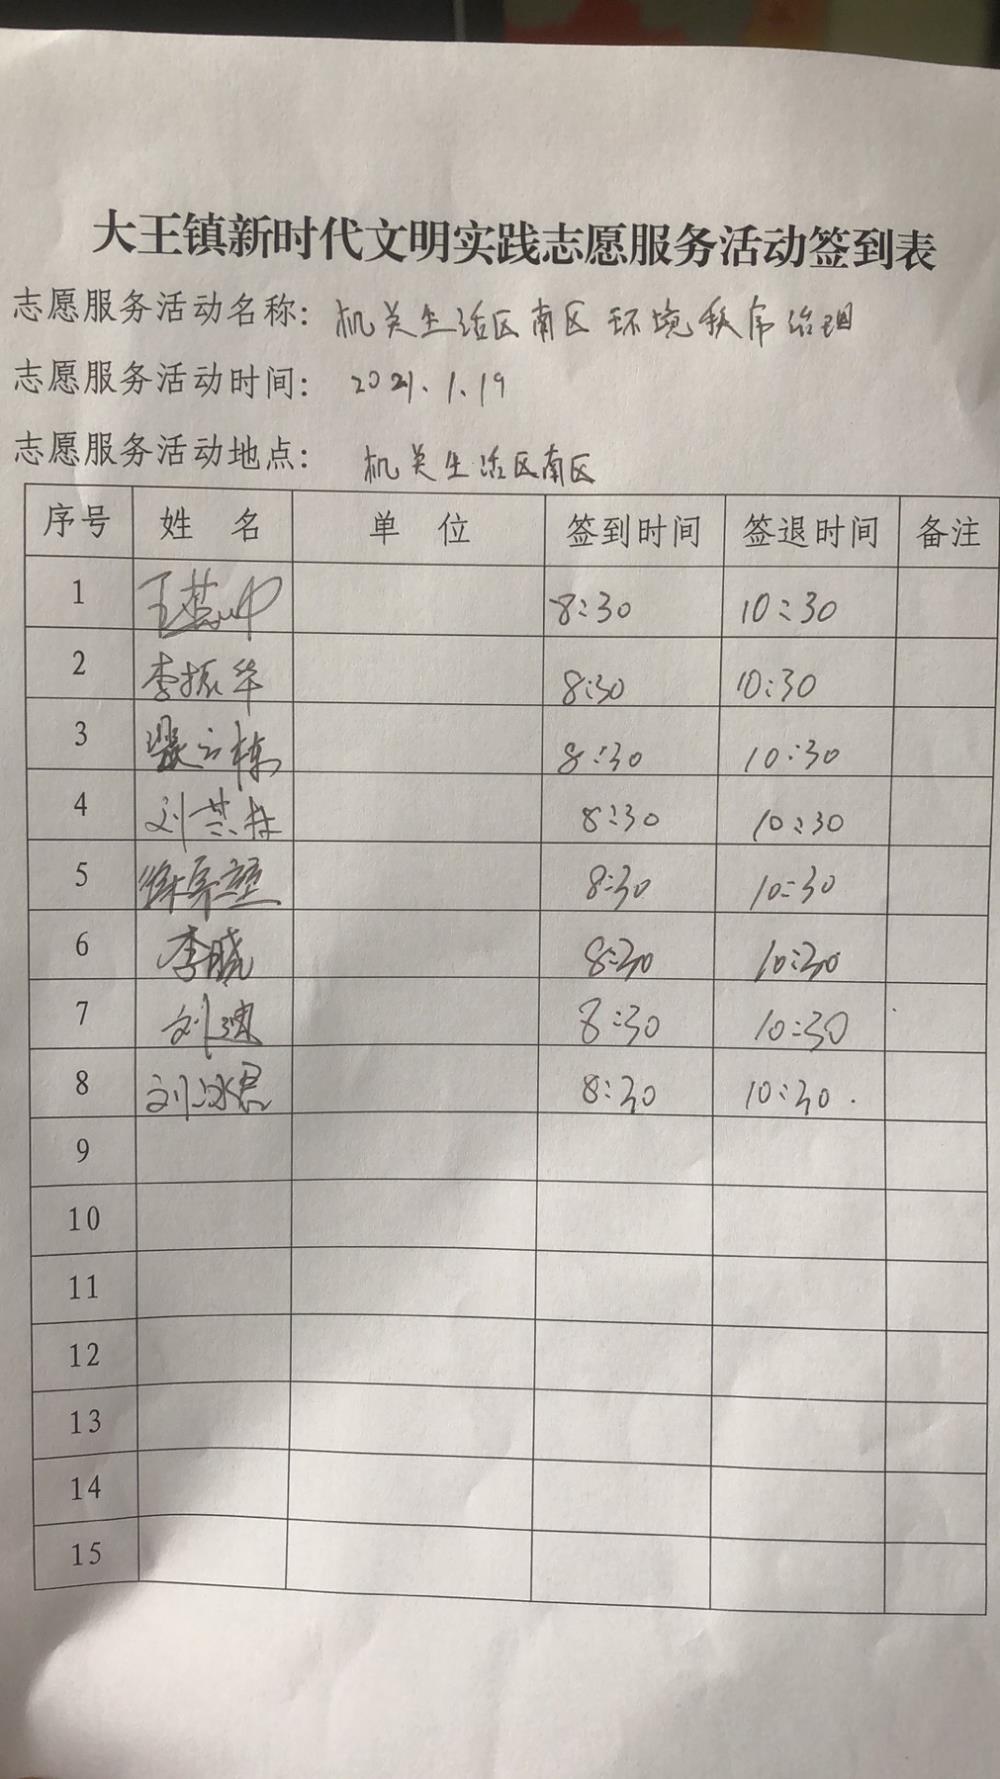 大王镇新时代文明实践志愿服务活动签到表
志愿服务活动名称：机关生活区南区环境秩序治理
志愿服务活动时间：2021.1.19
志愿服务活动地点：机关生活区南区
序号 姓 名 单 位 签到时间 签退时间 备注
1 8:30 10:30
2 李振华 8:30 10:30
3 8:30 10:30
4 刘 8:30 10:30
5 8:30 10:30
6 李晓 8:30 10:30
7 刘 8:30 10:30
8 刘冰君 8:30 10:30.
9
10
11
12
13
14
15